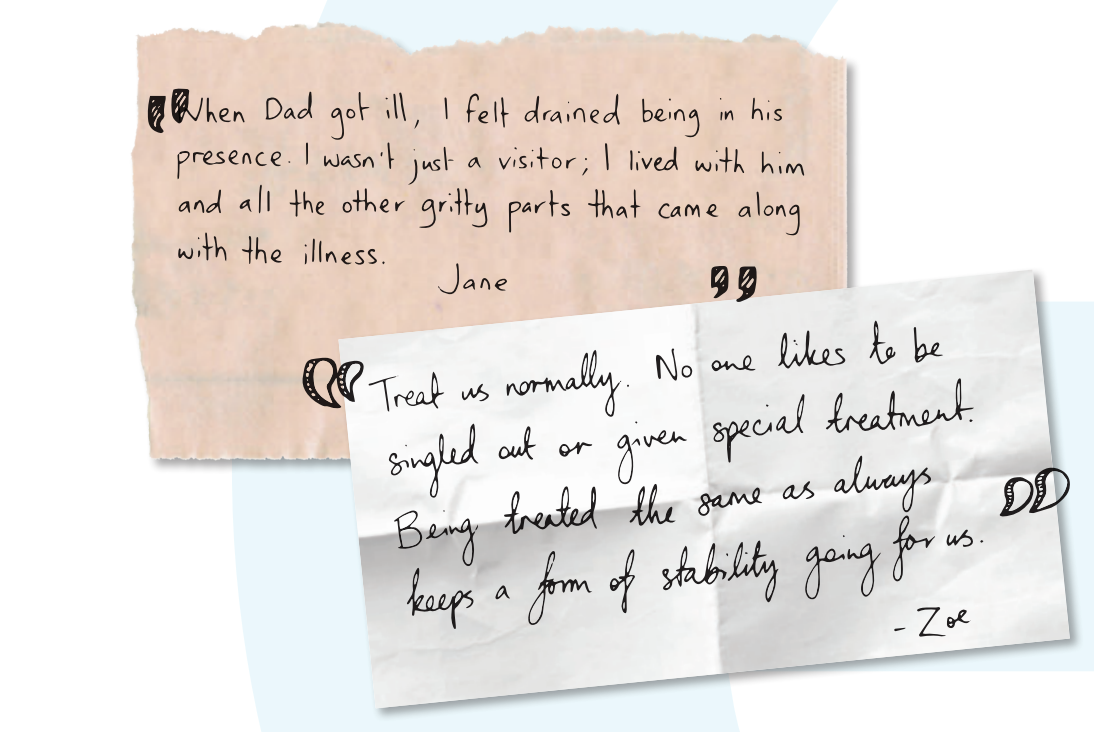 "When Dad got ill, I felt drained being in his
presence. I wasn't just a visitor; I lived with him
and all the other gritty parts that came along
with the illness.
Jane"
"Treat us normally. No one likes to be
singled out or given special treatment.
Being treated the same as always
keeps a form of stability going for us."
- Zoe